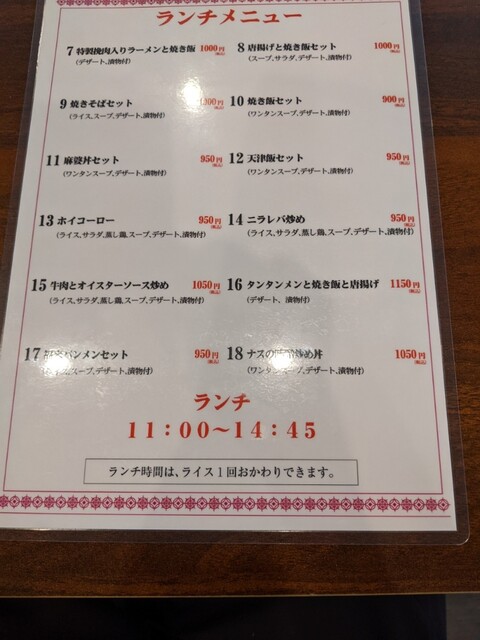 ランチメニュー
7 特製挽肉入りラーメンと焼き飯 1000円(税込)
(デザート、漬物付)
8 唐揚げと焼き飯セット 1000円(税込)
(スープ、サラダ、デザート、漬物付)
9 焼きそばセット
(ライス、スープ、デザート、漬物付)
10 焼き飯セット 900円(税込)
(ワンタンスープ、デザート、漬物付)
11 麻婆丼セット 950円(税込)
(ワンタンスープ、デザート、漬物付)
12 天津飯セット 950円(税込)
(ワンタンスープ、デザート、漬物付)
13 ホイコーロー 950円(税込)
(ライス、サラダ、蒸し鶏、スープ、デザート、漬物付)
14 ニラレバ炒め 950円(税込)
(ライス、サラダ、蒸し鶏、スープ、デザート、漬物付)
15 牛肉とオイスターソース炒め 1050円(税込)
(ライス、サラダ、蒸し鶏、スープ、デザート、漬物付)
16 タンタンメンと焼き飯と唐揚げ 1150円(税込)
(デザート、漬物付)
17 パンメンセット 950円(税込)
スープ、デザート、漬物付)
18 ナスの味噌炒め丼 1050円(税込)
(ワンタンスープ、デザート、漬物付)
ランチ
11:00〜14:45
ランチ時間は、ライス1回おかわりできます。